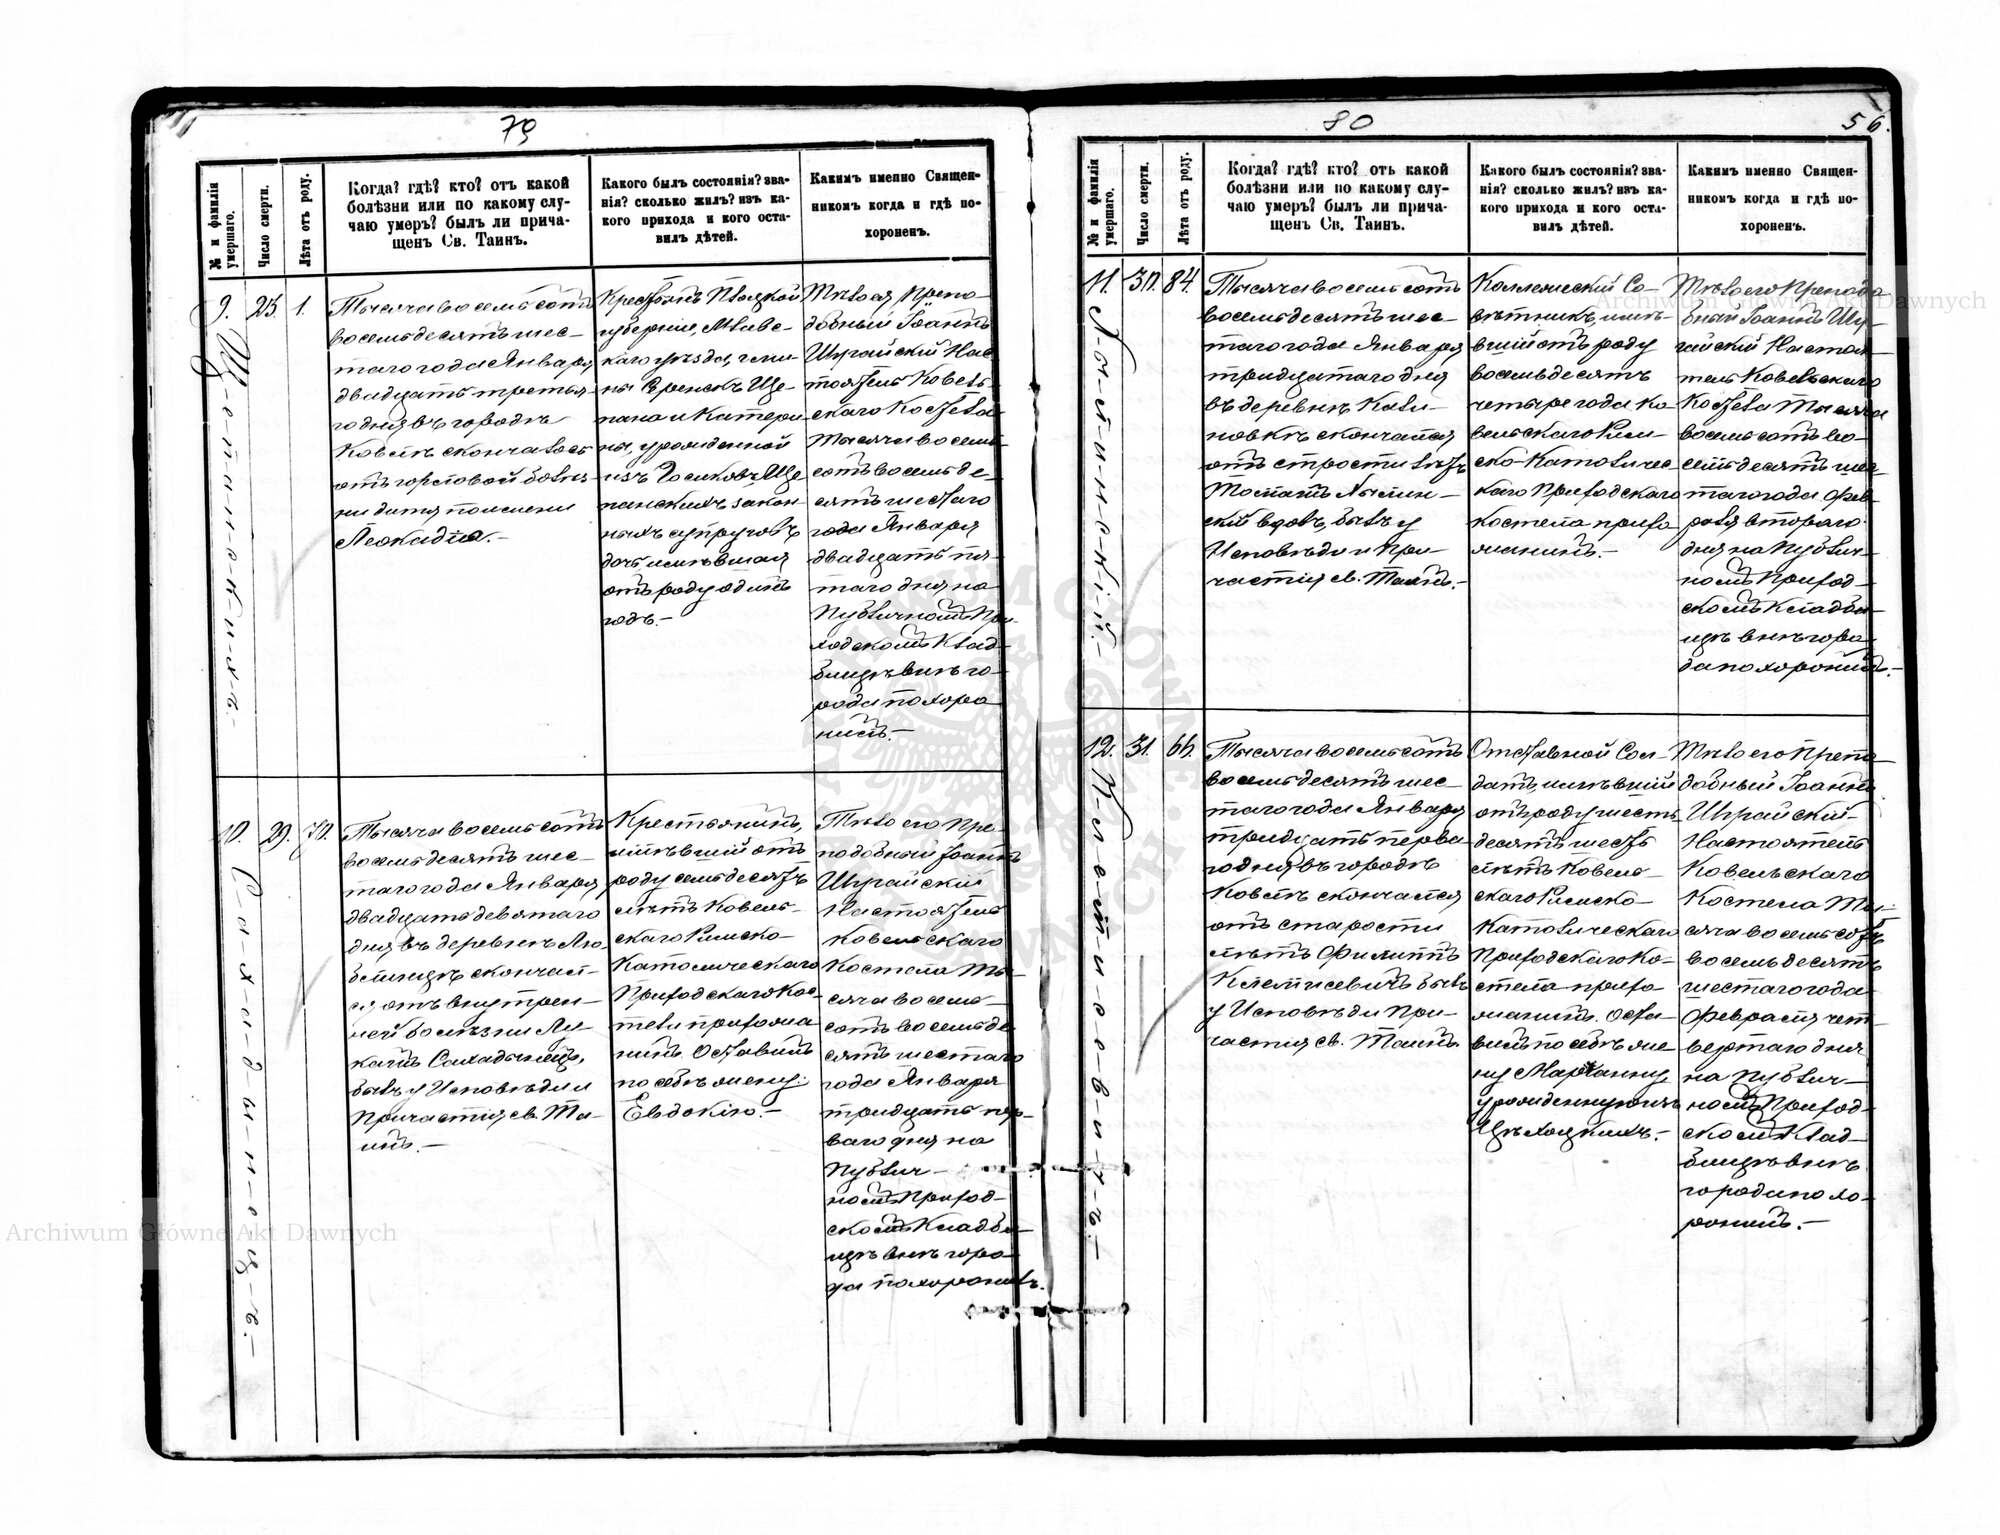 79
№ и фамилія умершаго.
Число смерти.
Лѣта отъ роду.
Когда? гдѣ? кто? отъ какой
болѣзни или по какому слу-
чаю умеръ? былъ ли прича-
щенъ Св. Таинъ.
Какого былъ состоянія? зва-
нія? сколько жилъ? изъ ка-
кого прихода и кого оста-
вилъ дѣтей.
Какимъ именно Священ-
никомъ когда и гдѣ по-
хороненъ.
9.
23.
1.
Тысяча восемьсотъ
восемьдесятъ шес-
таго года Января
двадцать третья-
го дня въ городѣ
Ковелѣ скончалось
отъ горловой болѣз-
ни дитя по имени
Леокадія.-
Крестьянъ Плоцкой
губерніи, Млавс-
каго уѣзда, гми-
ны
пана и Катери-
ны, урожденной
изъ
закон-
ныхъ супруговъ
дочь, имѣвшая
отъ роду одинъ
годъ.-
Тѣло ея Препо-
добный Іоаннъ
Шурайскій Нас-
тоятель Ковель-
скаго Костела
тысяча восемь-
сотъ восемьде-
сятъ шестаго
года Января
двадцать пя-
таго дня на
Публичномъ При-
ходскомъ Клад-
бищѣ внѣ го-
рода похоро-
нилъ.-
10.
29.
70.
Тысяча восемьсотъ
восемьдесятъ шес-
таго года Января
двадцать девятаго
дня въ деревнѣ Лю-
блинцѣ скончал-
ся отъ внутрен-
ней болѣзни Лу-
кашъ Сахадынецъ,
былъ у Исповѣди и
Причастія св. Та-
инъ.-
Крестьянинъ,
имѣвшій отъ
роду семьдесятъ
лѣтъ Ковель-
скаго Римско-
Католическаго
Приходскаго Кос-
тела прихожа-
нинъ. Оставилъ
по себѣ жену:
Евдокію.-
Тѣло его Пре-
подобный Іоаннъ
Шурайскій
Настоятель
Ковельскаго
Костела Ты-
сяча восемь-
сотъ восемьде-
сятъ шестаго
года Января
тридцать пер-
ваго дня на
Публич-
номъ Приход-
скомъ Кладби-
щѣ внѣ горо-
да похоронилъ.
80
56.
№ и фамилія умершаго.
Число смерти.
Лѣта отъ роду.
Когда? гдѣ? кто? отъ какой
болѣзни или по какому слу-
чаю умеръ? былъ ли прича-
щенъ Св. Таинъ.
Какого былъ состоянія? зва-
нія? сколько жилъ? изъ ка-
кого прихода и кого оста-
вилъ дѣтей.
Какимъ именно Священ-
никомъ когда и гдѣ по-
хороненъ.
11.
30.
84.
Тысяча восемьсотъ
восемьдесятъ шес-
таго года Января
тридцатаго дня
въ деревнѣ Кали-
новкѣ скончался
отъ старости лѣтъ
вдовъ, былъ у
Исповѣди и При-
частія св. Таинъ.-
Коллежскій Со-
вѣтникъ, имѣ-
вшій отъ роду
восемьдесятъ
четыре года Ко-
вельскаго Рим-
ско-Католичес-
каго Приходскаго
костела прихо-
жанинъ.-
Тѣло его Преподо-
бный Іоаннъ Шу-
райскій Настоя-
тель Ковельскаго
Костела Тысяча
восемьсотъ во-
семьдесятъ шес-
таго года Фев-
раля втораго
дня на Публич-
номъ Приход-
скомъ Кладби-
щѣ внѣ горо-
да похоронилъ.-
12.
31.
66.
К-л-е-м-и-с-е-в-и-ч-ъ.-
Тысяча восемьсотъ
восемьдесятъ шес-
таго года Января
тридцать перва-
го дня въ городѣ
Ковелѣ скончался
отъ старости
лѣтъ Филиппъ
Клемисевичъ былъ
у Исповѣди и При-
частія св. Таинъ.
Отставной Сол-
датъ, имѣвшій
отъ роду шесть-
десятъ шесть
лѣтъ Ковель-
скаго Римско-
Католическаго
Приходскаго Ко-
стела прихо-
жанинъ. Оста-
вилъ по себѣ же-
ну Маріанну,
урожденную изъ
Цѣхоцкихъ.-
Тѣло его Препо-
добный Іоаннъ
Шурайскій
Настоятель
Ковельскаго
Костела Ты-
сяча восемьсотъ
восемьдесятъ
шестаго года
Февраля чет-
вертаго дня
на Публич-
номъ Приход-
скомъ Клад-
бищѣ внѣ
города похо-
ронилъ.-
Archiwum Główne Akt Dawnych
Archiwum Główne Akt Dawnych